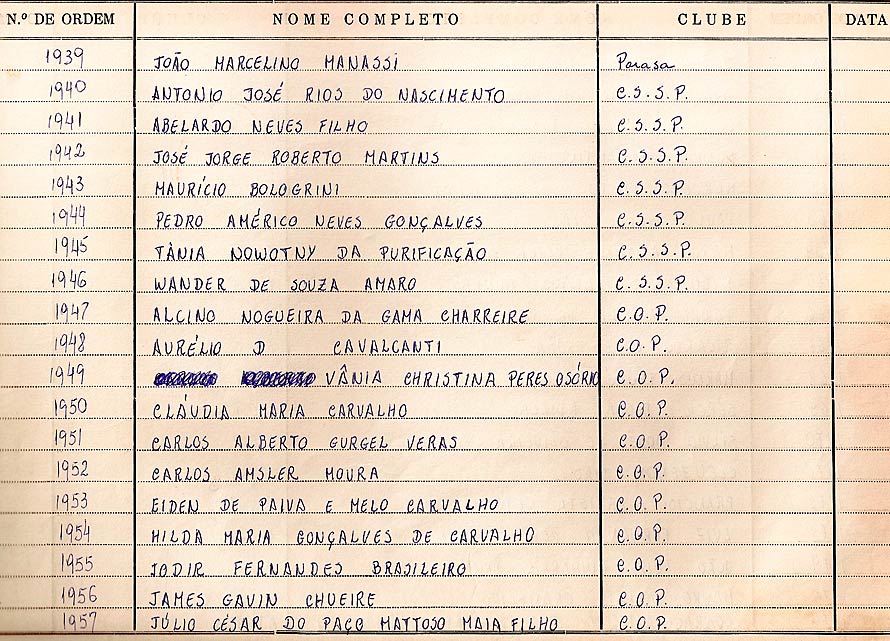 N.º DE ORDEM NOME COMPLETO CLUBE DATA
1939 JOÃO MARCELINO MANASSI Parasa
1940 ANTONIO JOSÉ RIOS DO NASCIMENTO C.S.S.P.
1941 ABELARDO NEVES FILHO C.S.S.P.
1942 JOSÉ JORGE ROBERTO MARTINS C.S.S.P.
1943 MAURÍCIO BOLOGRINI C.S.S.P.
1944 PEDRO AMÉRICO NEVES GONÇALVES C.S.S.P.
1945 TÂNIA NOWOTNY DA PURIFICAÇÃO C.S.S.P.
1946 WANDER DE SOUZA AMARO C.S.S.P.
1947 ALCINO NOGUEIRA DA GAMA CHARREIRE C.O.P.
1948 AURÉLIO D CAVALCANTI C.O.P.
1949 VÂNIA CHRISTINA PERES OSÓRIO C.O.P.
1950 CLÁUDIA MARIA CARVALHO C.O.P.
1951 CARLOS ALBERTO GURGEL VERAS C.O.P.
1952 CARLOS AMSLER MOURA C.O.P.
1953 EIDEN DE PAIVA E MELO CARVALHO C.O.P.
1954 HILDA MARIA GONÇALVES DE CARVALHO C.O.P.
1955 JODIR FERNANDES BRASILEIRO C.O.P.
1956 JAMES GAVIN CHUEIRE C.O.P.
1957 JÚLIO CÉSAR DO PAÇO MATTOSO MAIA FILHO C.O.P.